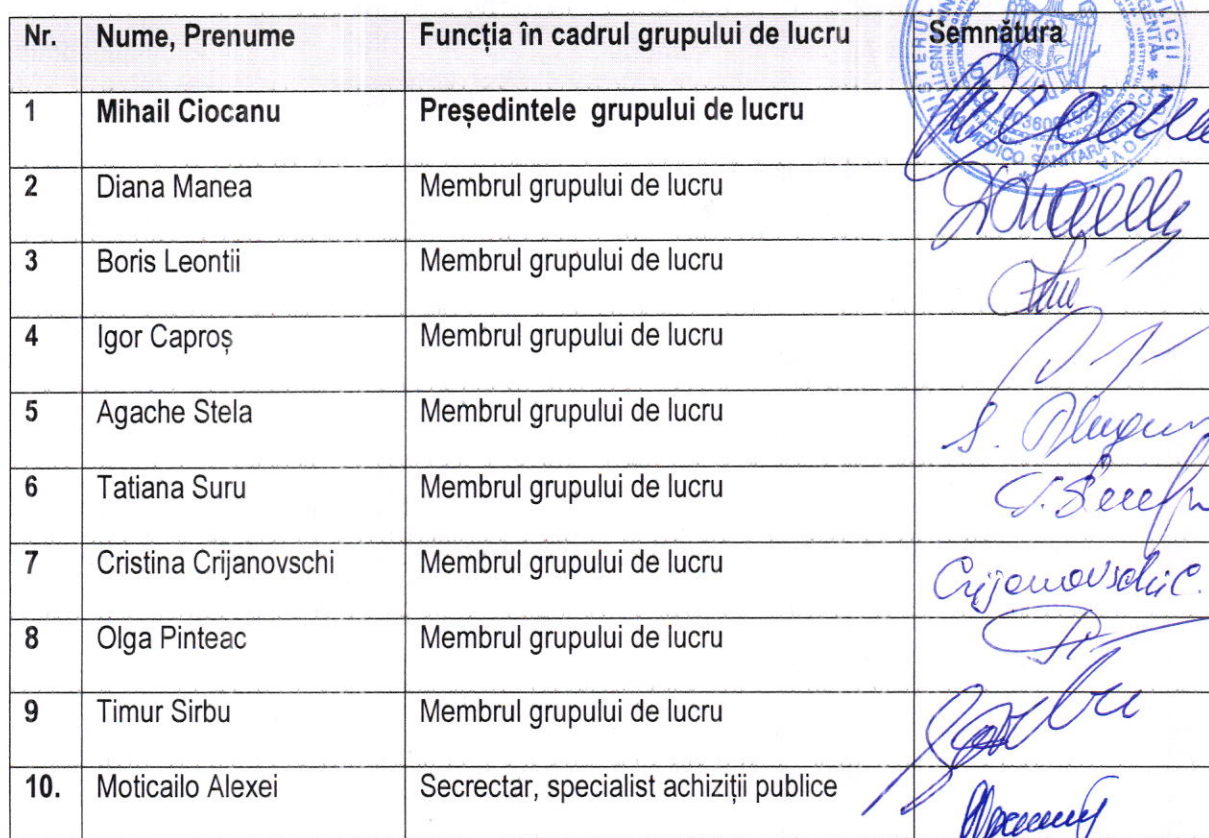 Nr. Nume, Prenume Funcția în cadrul grupului de lucru Semnătura
1 Mihail Ciocanu Președintele grupului de lucru
2 Diana Manea Membrul grupului de lucru
3 Boris Leontii Membrul grupului de lucru
4 Igor Caproș Membrul grupului de lucru
5 Agache Stela Membrul grupului de lucru
6 Tatiana Suru Membrul grupului de lucru
7 Cristina Crijanovschi Membrul grupului de lucru Crijanovschi C.
8 Olga Pinteac Membrul grupului de lucru
9 Timur Sirbu Membrul grupului de lucru
10. Moticailo Alexei Secrectar, specialist achiziții publice